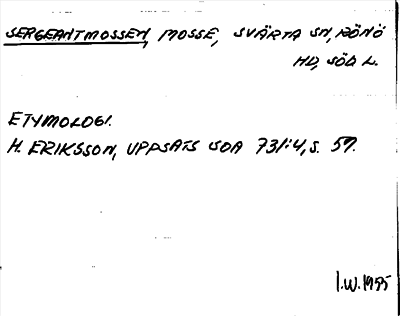 SERGEANTMOSSEN, MOSSE, SVÄRTA SN, RÖNÖ
HD, SÖD L.
ETYMOLOGI.
H. ERIKSSON, UPPSATS SOA 731:4, S. 57.
I.W. 1955